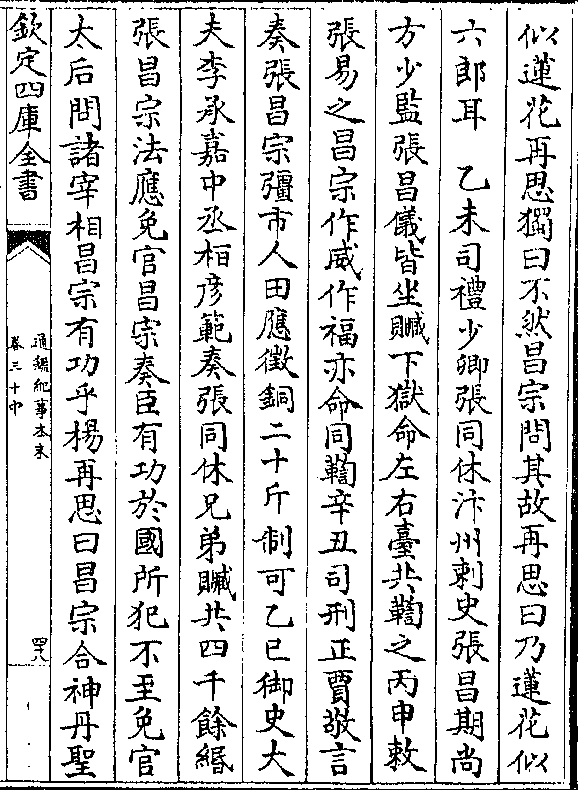 似蓮花再思獨曰不然昌宗問其故再思曰乃蓮花似
六郎耳　乙未司禮少卿張同休汴州刺史張昌期尚
方少監張昌儀皆坐贓下獄命左右臺共鞫之丙申敕
張易之昌宗作威作福亦命同鞫辛丑司刑正賈敬言
奏張昌宗彊市人田應徵銅二十斤制可乙巳御史大
夫李承嘉中丞桓彦範奏張同休兄弟贓共四千餘緡
張昌宗法應免官昌宗奏臣有功於國所犯不至免官
太后問諸宰相昌宗有功乎楊再思曰昌宗合神丹聖
欽定四庫全書
通鑑紀事本末
卷三十中
四十八